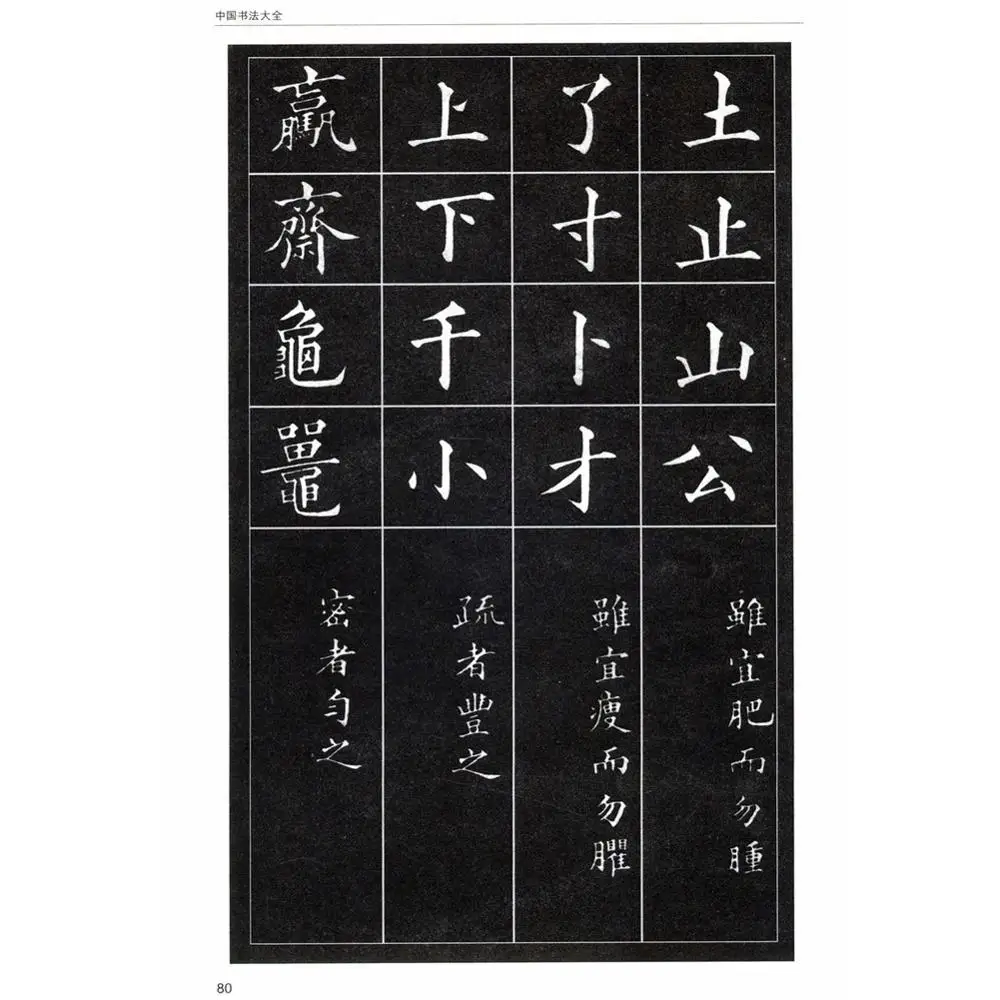 中国书法大全
土止山公
雖宜肥而勿腫
了寸卜才
雖宜瘦而勿臞
上下千小
疏者豐之
齋龜鼉
密者勻之
80